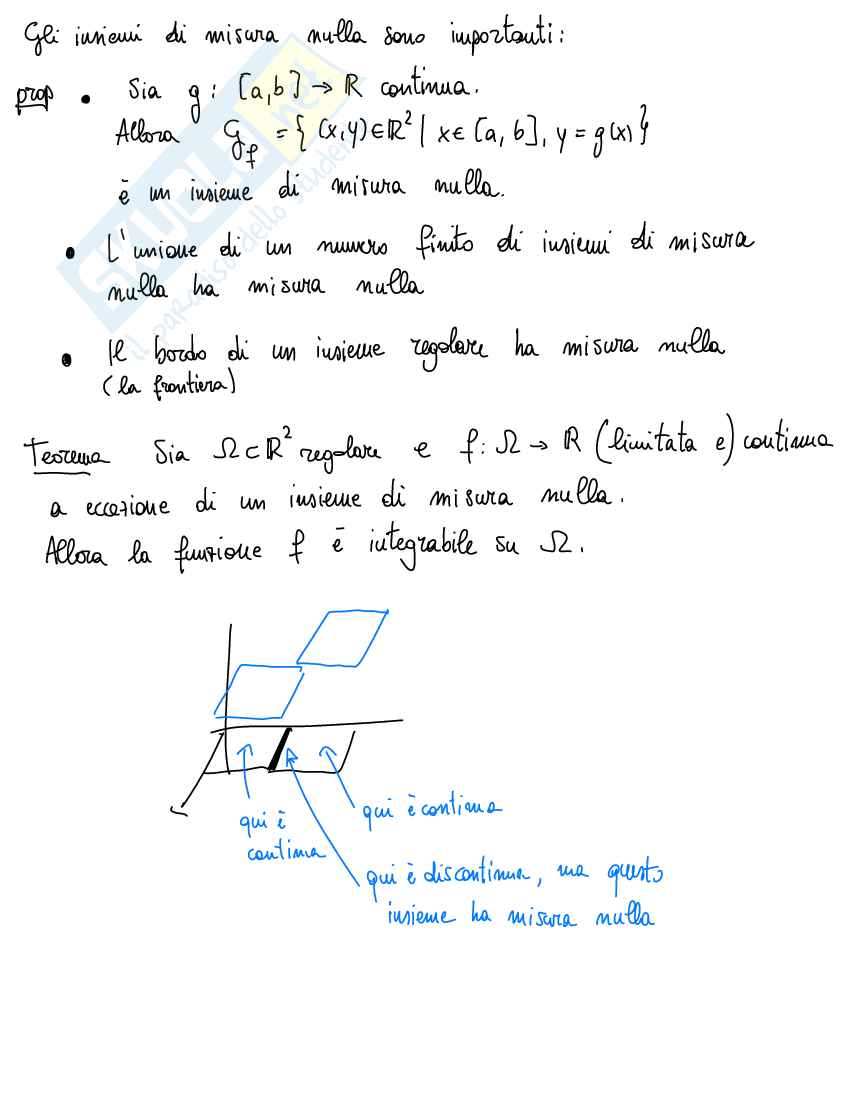 Gli insiemi di misura nulla sono importanti:
prop • Sia g: [a,b] → ℝ continua.
Allora G_f = { (x,y)∈ℝ² | x∈[a,b], y=g(x)}
è un insieme di misura nulla.
• L'unione di un numero finito di insiemi di misura
nulla ha misura nulla
• Il bordo di un insieme regolare ha misura nulla
(la frontiera)
Teorema Sia Ω⊂ℝ² regolare e f: Ω → ℝ (limitata e) continua
a eccezione di un insieme di misura nulla.
Allora la funzione f è integrabile su Ω.
qui è
continua
qui è continua
qui è discontinua, ma questo
insieme ha misura nulla
SKUOLA.net
il paradiso dello studen